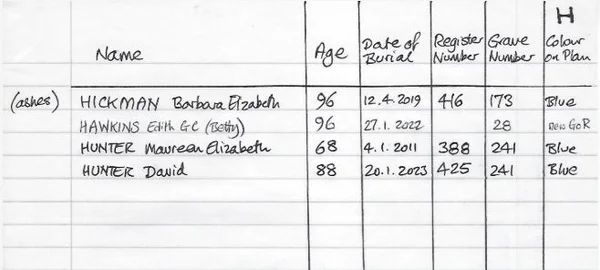 H
Name Age Date of Burial Register Number Grave Number Colour on Plan
(ashes) HICKMAN Barbara Elizabeth 96 12.4.2019 416 173 Blue
HAWKINS Edith G C (Betty) 96 27.1.2022 28 New GoR
HUNTER Maureen Elizabeth 68 4.1.2011 388 241 Blue
HUNTER David 88 20.1.2023 425 241 Blue